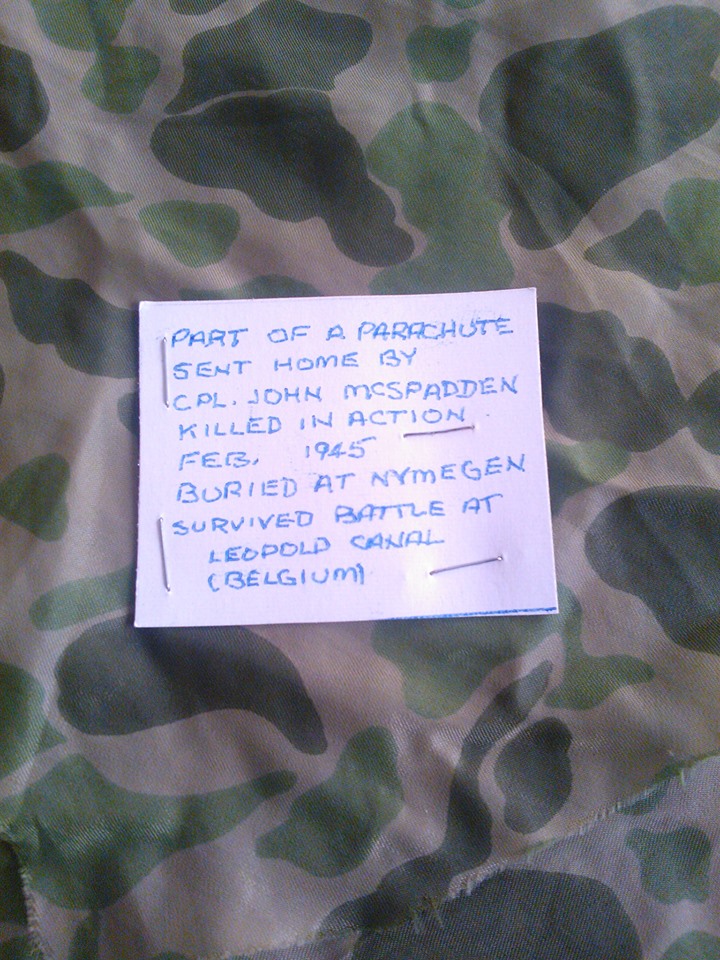 PART OF A PARACHUTE
SENT HOME BY
CPL. JOHN MCSPADDEN
KILLED IN ACTION
FEB. 1945
BURIED AT NYMEGEN
SURVIVED BATTLE AT
LEOPOLD CANAL
(BELGIUM)